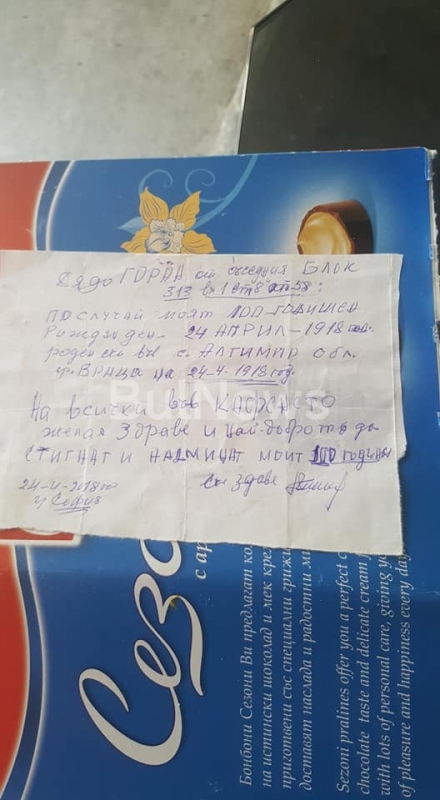 Дядо ГОРАН от съседния БЛОК
313 вх 1 ет 8 ап 58:
ПО СЛУЧАЙ МОЯТ 100-ГОДИШЕН
Рожден ден - 24 АПРИЛ - 1918 год.
роден съм в с. АЛТИМИР обл.
гр. ВРАЦА на 24-4-1918 год.
На всиски във КАУФЛАНТО
желая здраве и най-доброто да
СТИГНАТ И НАДМИНАТ МОИТ 100 ГОДИНИ
24-4-2018 год
гр София
Със здраве
BulNews
Сезо
с ар
Бонбони Сезони Ви предлагат ко
на истински шоколад и мек кре
приготвени със специални грижи
доставят наслада и радостни ми
Sezoni pralines offer you a perfect c
chocolate taste and delicate cream
with lots of personal care, giving yo
of pleasure and happiness every day